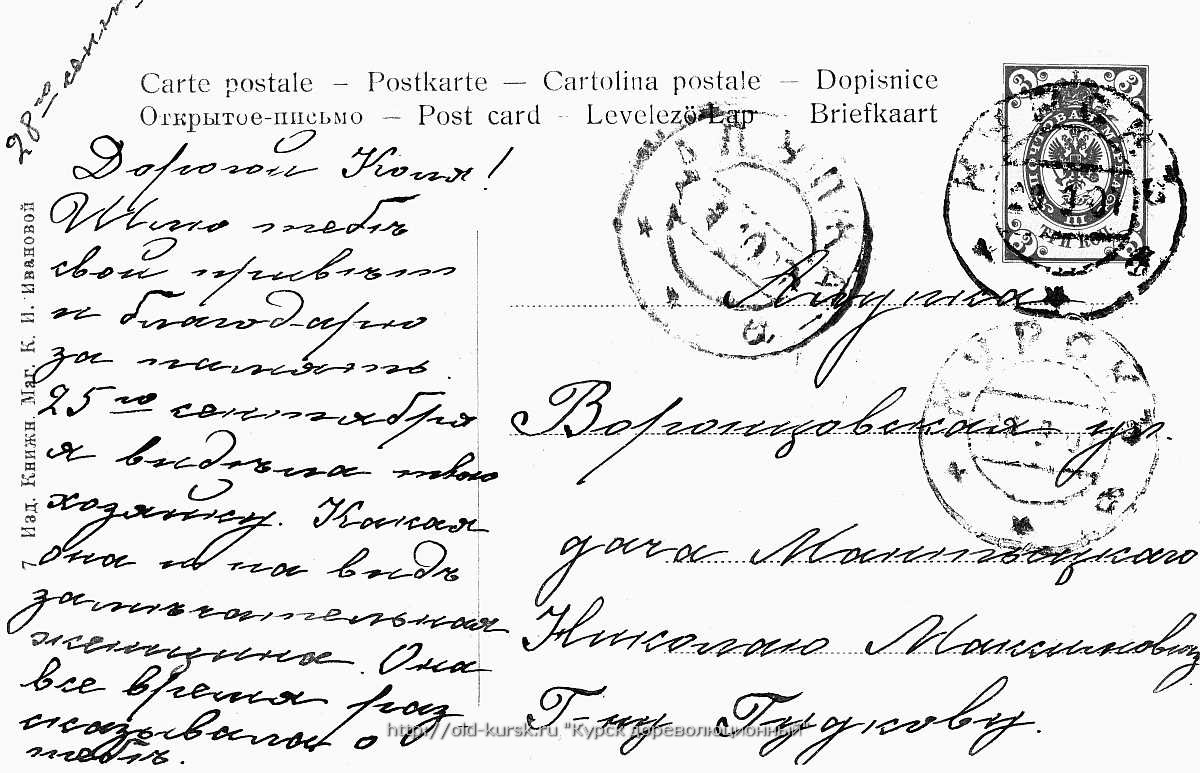 28го сент
Carte postale – Postkarte — Cartolina postale — Dopisnice
Открытое-письмо — Post card – Levelező-Lap – Briefkaart
Дорогой Коля!
Шлю тебѣ
свой привѣт
и благодарю
за память.
25го сентября
я видѣла твою
хозяйку. Какая
она на видъ
замѣчательная
женщина. Она
все время раз
сказывала о
тебѣ.
7 Изд. Книжн. Маг. К. И. Ивановой
ПОЧТОВАЯ МАРКА
КОП
КУРСКЪ
Алупка
Воронцовская ул.
дача
Николаю Максимович
Г-ну Гудкову.
АЛУПКА
КУРСКЪ
http://old-kursk.ru "Курск дореволюционный"